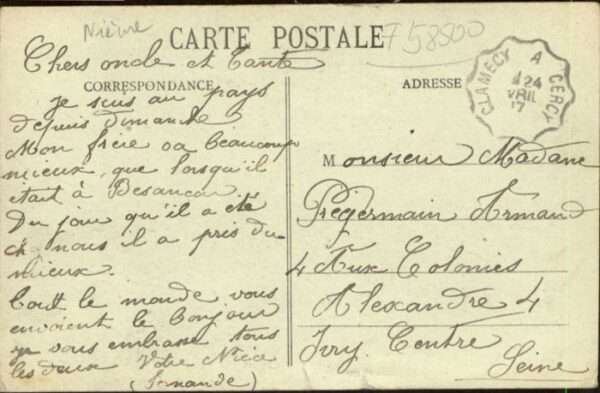 Nièvre
F 58500
CARTE POSTALE
Chers oncle et tante
CORRESPONDANCE
ADRESSE
CLAMECY A CERCY
24
AVRIL
17
Je suis au pays
depuis dimanche
Mon frère va beaucoup
mieux, que lorsqu'il
était à Besançon
Du jour qu'il a été
chez nous il a pris du
mieux.
Tout le monde vous
envoient le bonjour
je vous embrasse tous
les deux Votre Nièce
(Fernande)
Monsieur Madame
Prégermain Armand
4 Aux Colonies
Alexandre 4
Ivry Centre
Seine